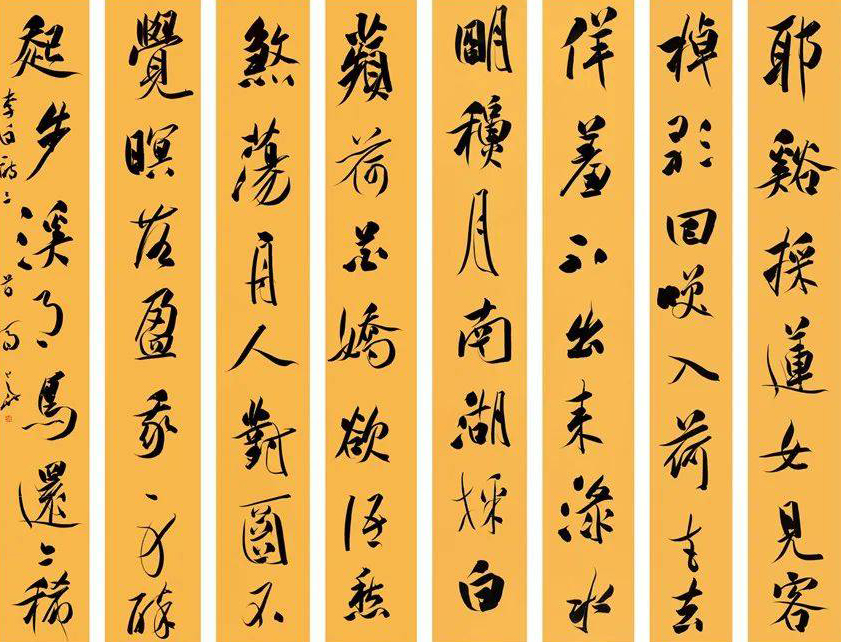 耶谿採蓮女見客
棹歌回咲入荷花去
佯羞不出来渌水
明穐月南湖採白
蘋荷花嬌欲語愁
煞蕩舟人對酒不
覺暝落盈我衣醉
起步溪月鳥還稀
李白詩二首